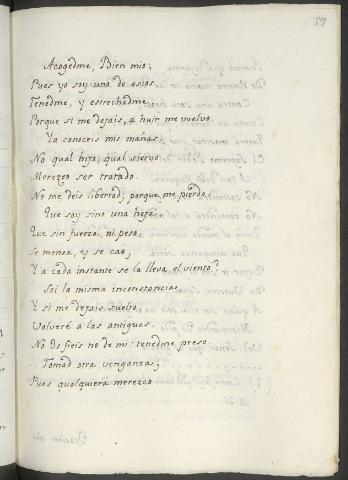 57
Acogedme, Bien mio;
Pues yo soy uno de esos.
Tenedme, y estrechadme
Porque si me dejais, a huir me vuelvo.
Ya conoceis mis mañas.
No qual hijo, qual siervo
Merezco ser tratado.
No me deis libertad; porque me pierdo.
Que soy sino una hoja
Que sin fuerza, ni peso,
Se menea, y se cae,
Y a cada instante se la lleva el viento?
Soi la misma inconstancia,
Y si me dejais suelto,
Volveré à las antiguas.
No Os fieis no de mi: tenedme preso.
Tomad otra venganza;
Pues qualquiera merezco